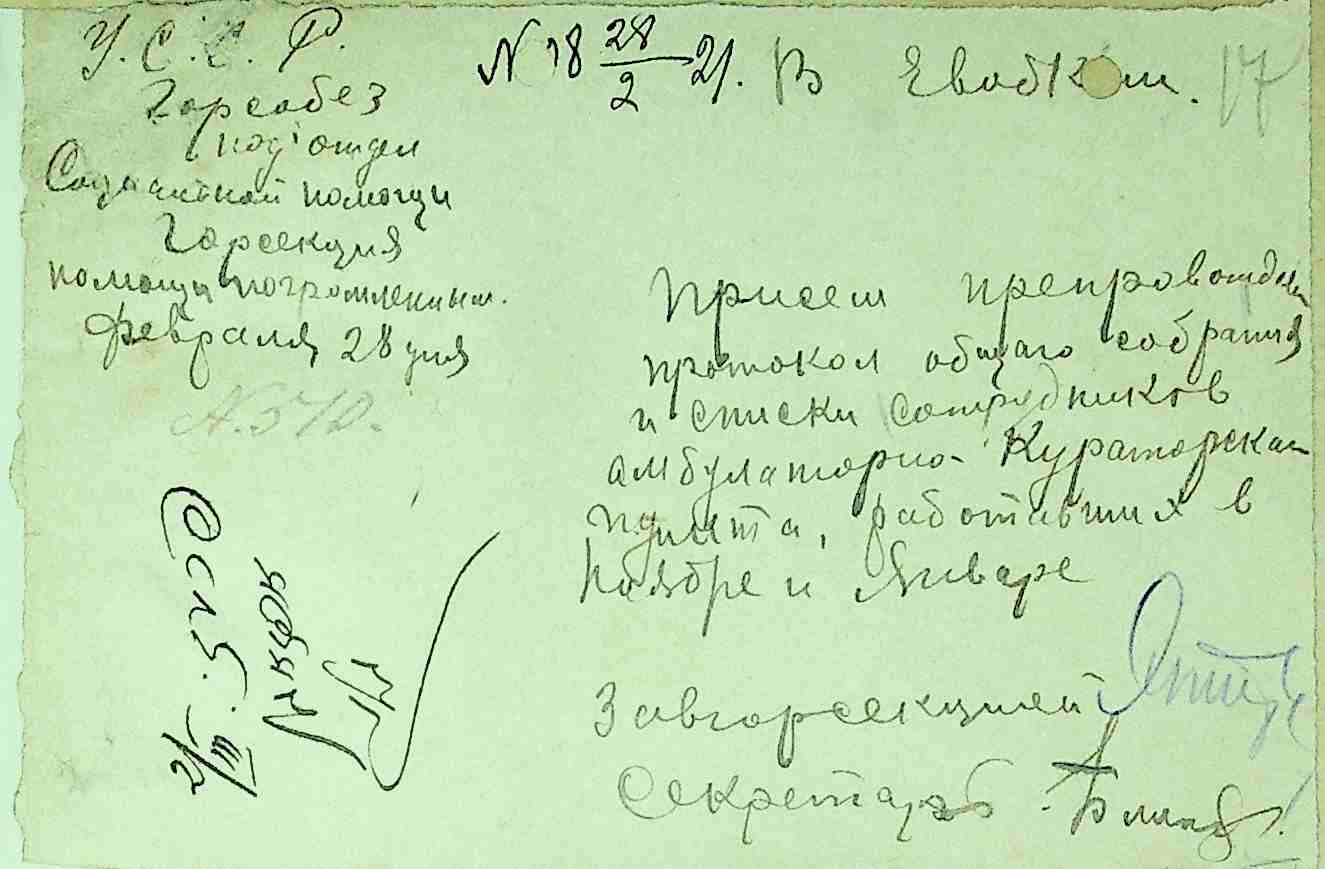 У.С.С.Р.
Горсобез
под'отдел
Социальной помощи
Горсекция
помощи погромленным.
Февраля 28 дня
N. 512.
N 18 28/2 21. В Евобком. 17
При сем препровождаем
протокол общаго собрания
и списки сотрудников
амбулаторно-Кураторскаго
пункта, работавших в
Ноябре и Январе
Завгорсекцией
Секретарь